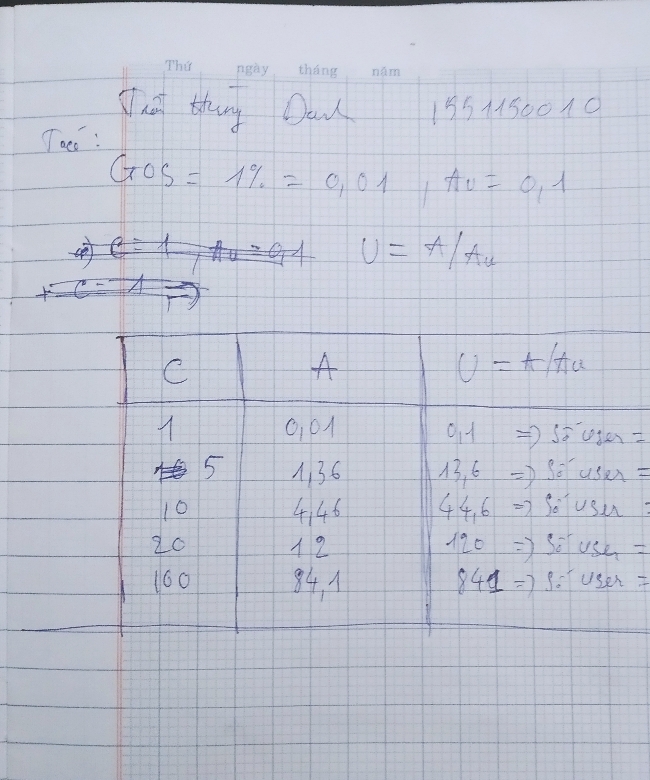 Thứ ngày tháng năm
Trần Hưng Danh 1551150010
Ta có:
GOS = 1% = 0,01 , Au = 0,1
=) C = 1 , Au = 0,1 U = A/Au
+ C = 1
C A U = A/Au
1 0,01 0,1 => Số user =
5 1,36 13,6 => Số user =
10 4,46 44,6 => Số user =
20 12 120 => Số user =
100 84,1 841 => Số user =